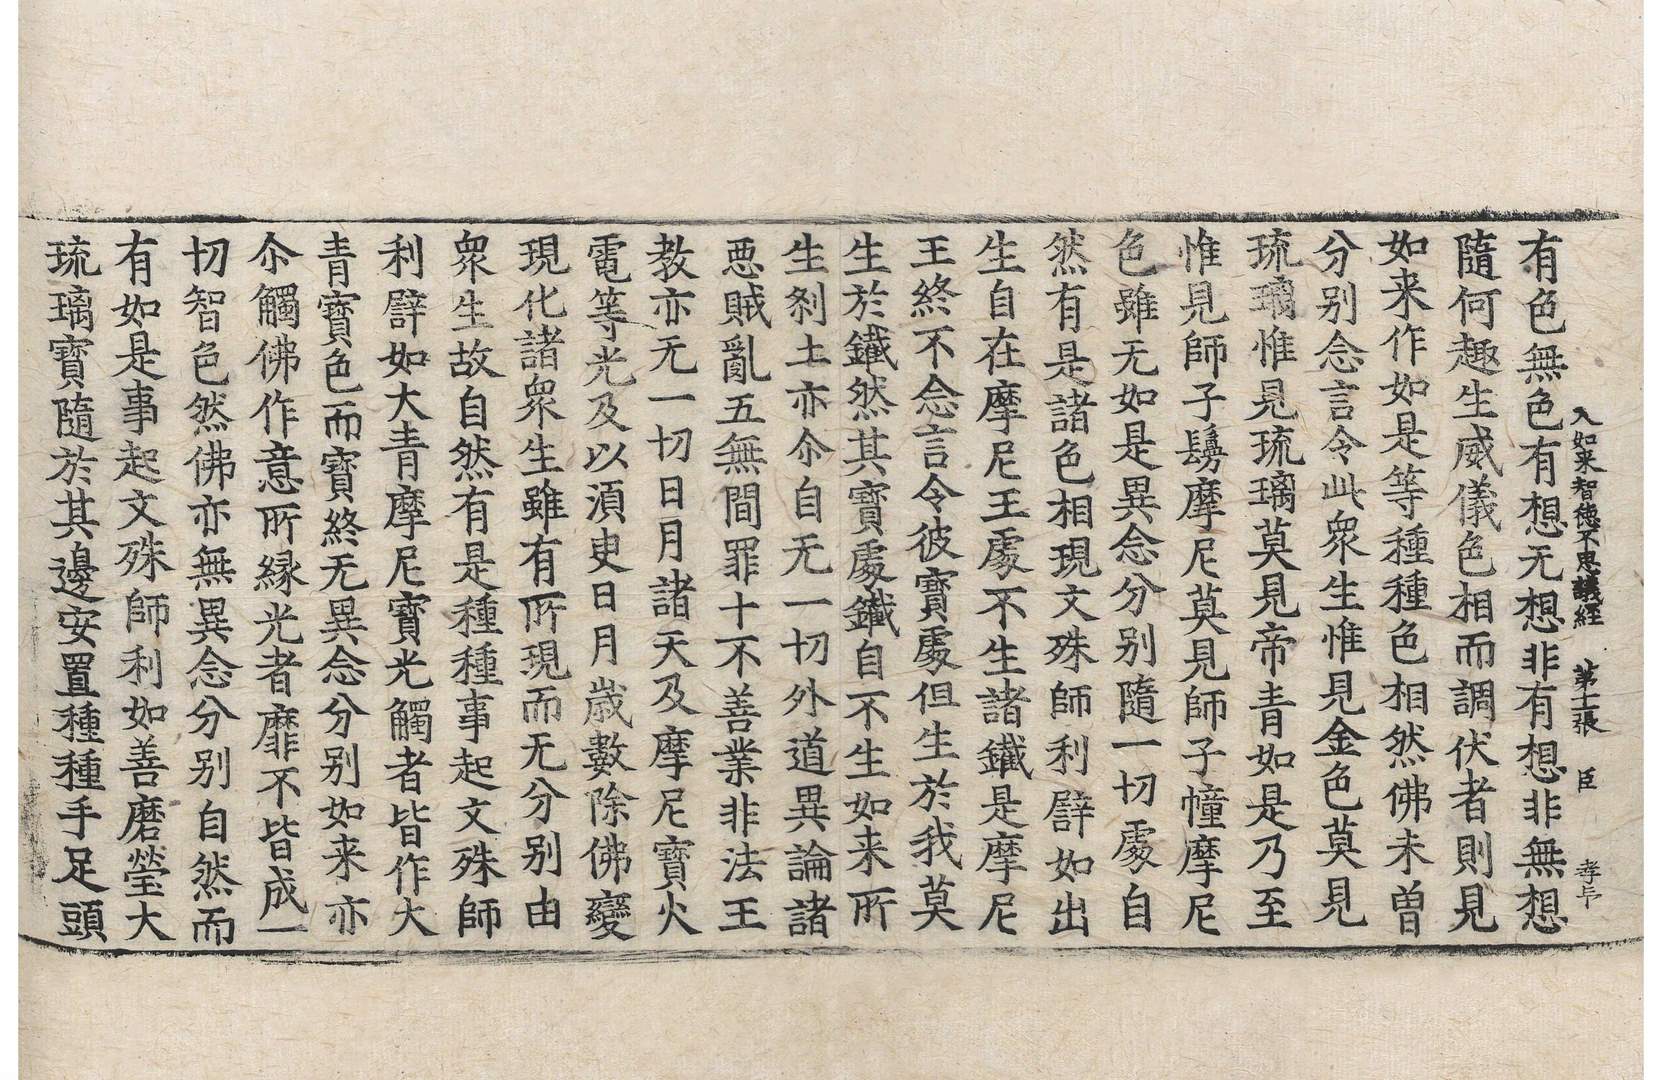 入如来智德不思議經 第十二張 臣 孝与
有色無色有想无想非有想非無想
隨何趣生威儀色相而調伏者則見
如来作如是等種種色相然佛未曾
分别念言令此衆生惟見金色莫見
琉璃惟見琉璃莫見帝青如是乃至
惟見師子鬘摩尼莫見師子幢摩尼
色雖无如是異念分别隨一切處自
然有是諸色相現文殊師利譬如出
生自在摩尼王處不生諸鐵是摩尼
王終不念言令彼寶處但生於我莫
生於鐵然其寶處鐵自不生如来所
生刹土亦尒自无一切外道異論諸
悪賊亂五無間罪十不善業非法王
教亦无一切日月諸天及摩尼寶火
電等光及以須臾日月歳數除佛變
現化諸衆生雖有所現而无分别由
衆生故自然有是種種事起文殊師
利譬如大青摩尼寶光觸者皆作大
青寶色而寶終无異念分别如来亦
尒觸佛作意所縁光者靡不皆成一
切智色然佛亦無異念分别自然而
有如是事起文殊師利如善磨瑩大
琉璃寶隨於其邊安置種種手足頭